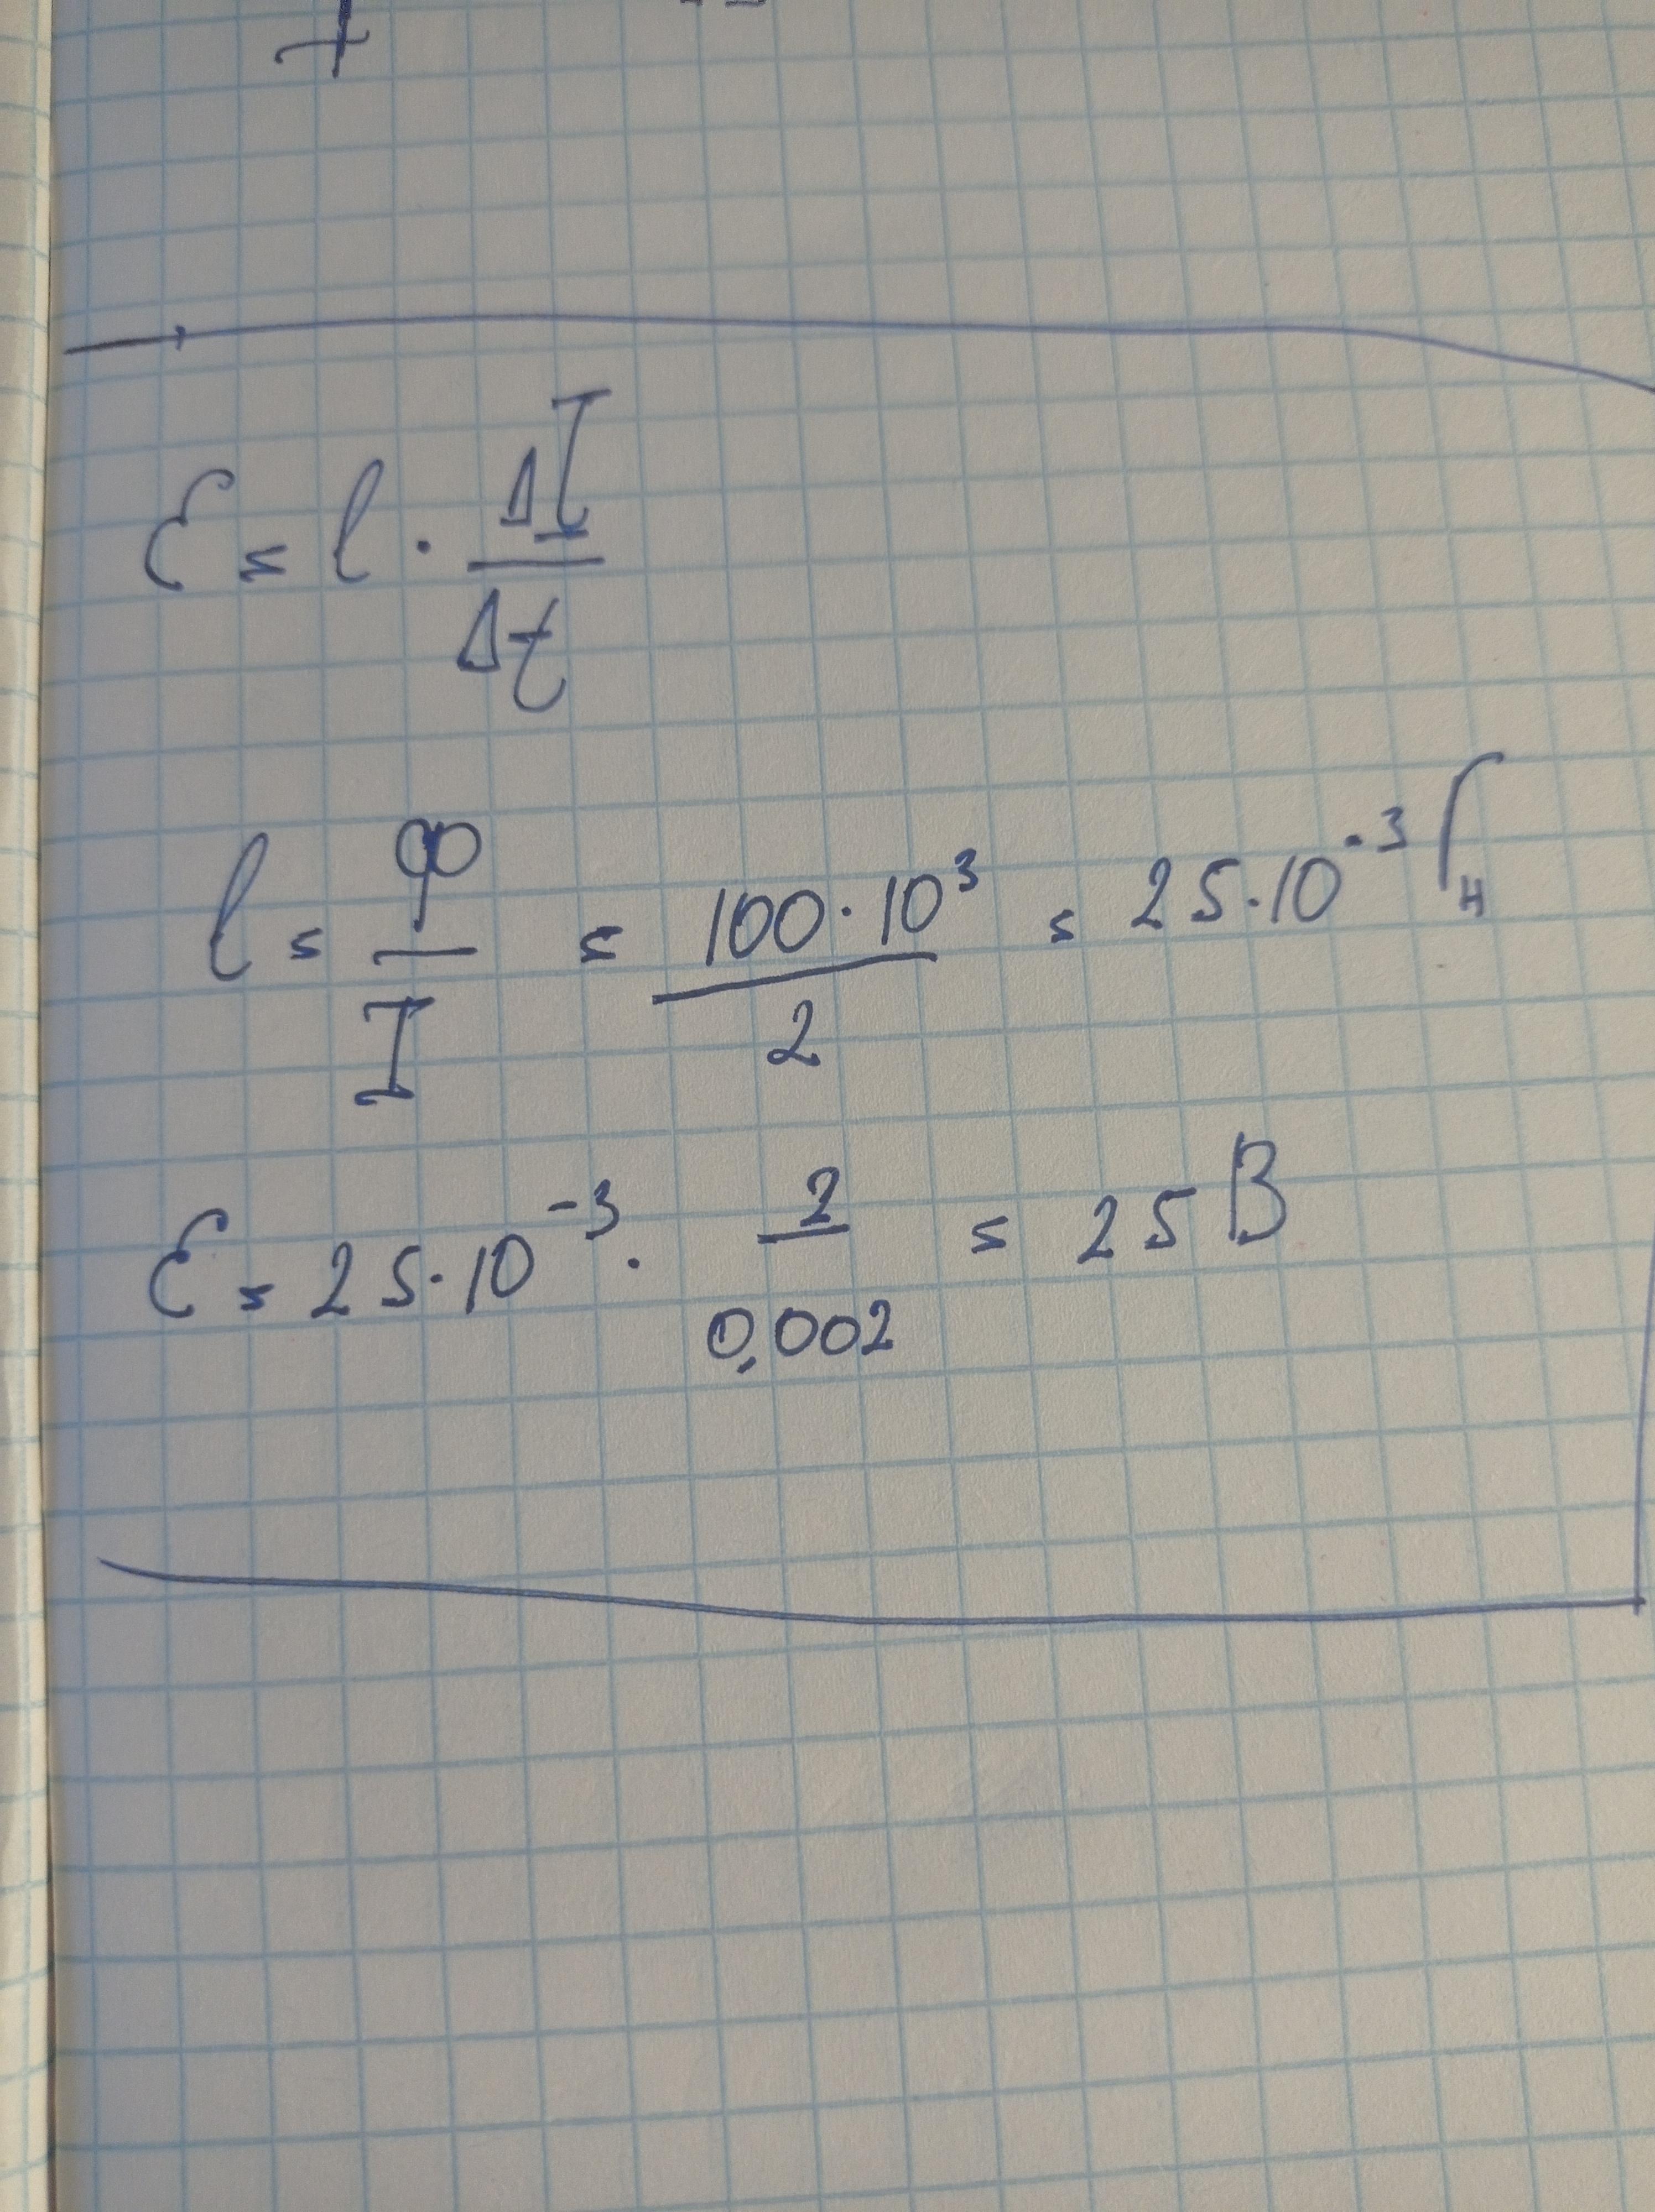 ℰ = l · ΔI / Δt
l = φ / I = 100·10³ / 2 = 25·10⁻³ Гн
ℰ = 25·10⁻³ · 2 / 0,002 = 25 В